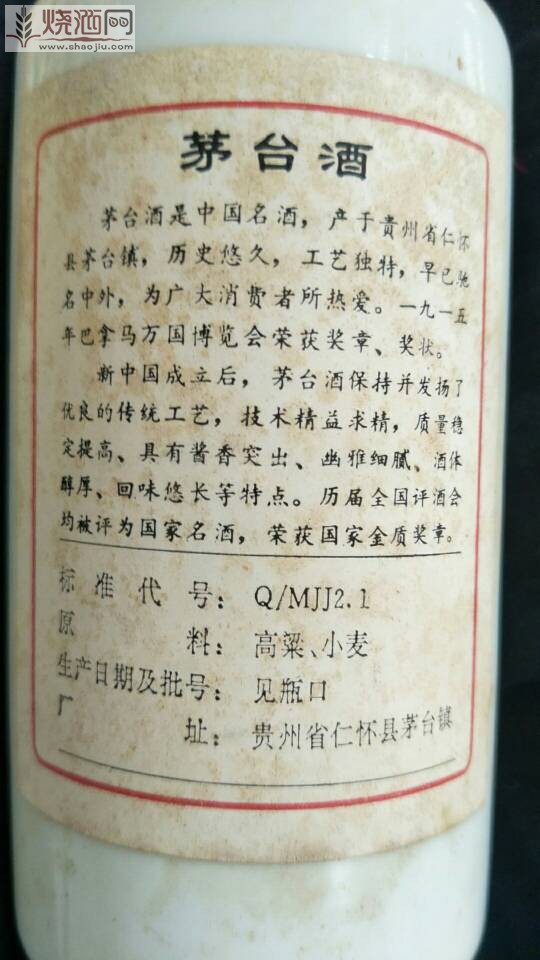 烧酒网
www.shaojiu.com
茅台酒
茅台酒是中国名酒，产于贵州省仁怀
县茅台镇，历史悠久，工艺独特，早已驰
名中外，为广大消费者所热爱。一九一五
年巴拿马万国博览会荣获奖章、奖状。
新中国成立后，茅台酒保持并发扬了
优良的传统工艺，技术精益求精，质量稳
定提高、具有酱香突出、幽雅细腻、酒体
醇厚、回味悠长等特点。历届全国评酒会
均被评为国家名酒，荣获国家金质奖章。
标准代号：Q/MJJ2.1
原料：高粱、小麦
生产日期及批号：见瓶口
厂址：贵州省仁怀县茅台镇